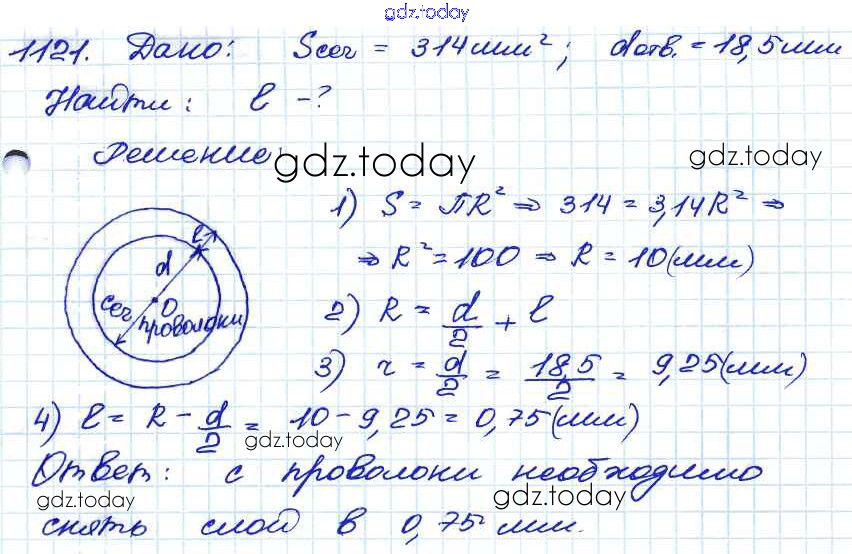 gdz.today
1121. Дано: Sсеч = 314 мм²; dотв. = 18,5 мм
Найти: l - ?
Решение:
gdz.today
gdz.today
1) S = πR² ⇒ 314 = 3,14R² ⇒
⇒ R² = 100 ⇒ R = 10 (мм)
l
d
O
сеч
проволоки
2) R = d/2 + l
3) r = d/2 = 18,5/2 = 9,25 (мм)
4) l = R - d/2 = 10 - 9,25 = 0,75 (мм)
gdz.today
Ответ: с проволоки необходимо
gdz.today
gdz.today
снять слой в 0,75 мм.